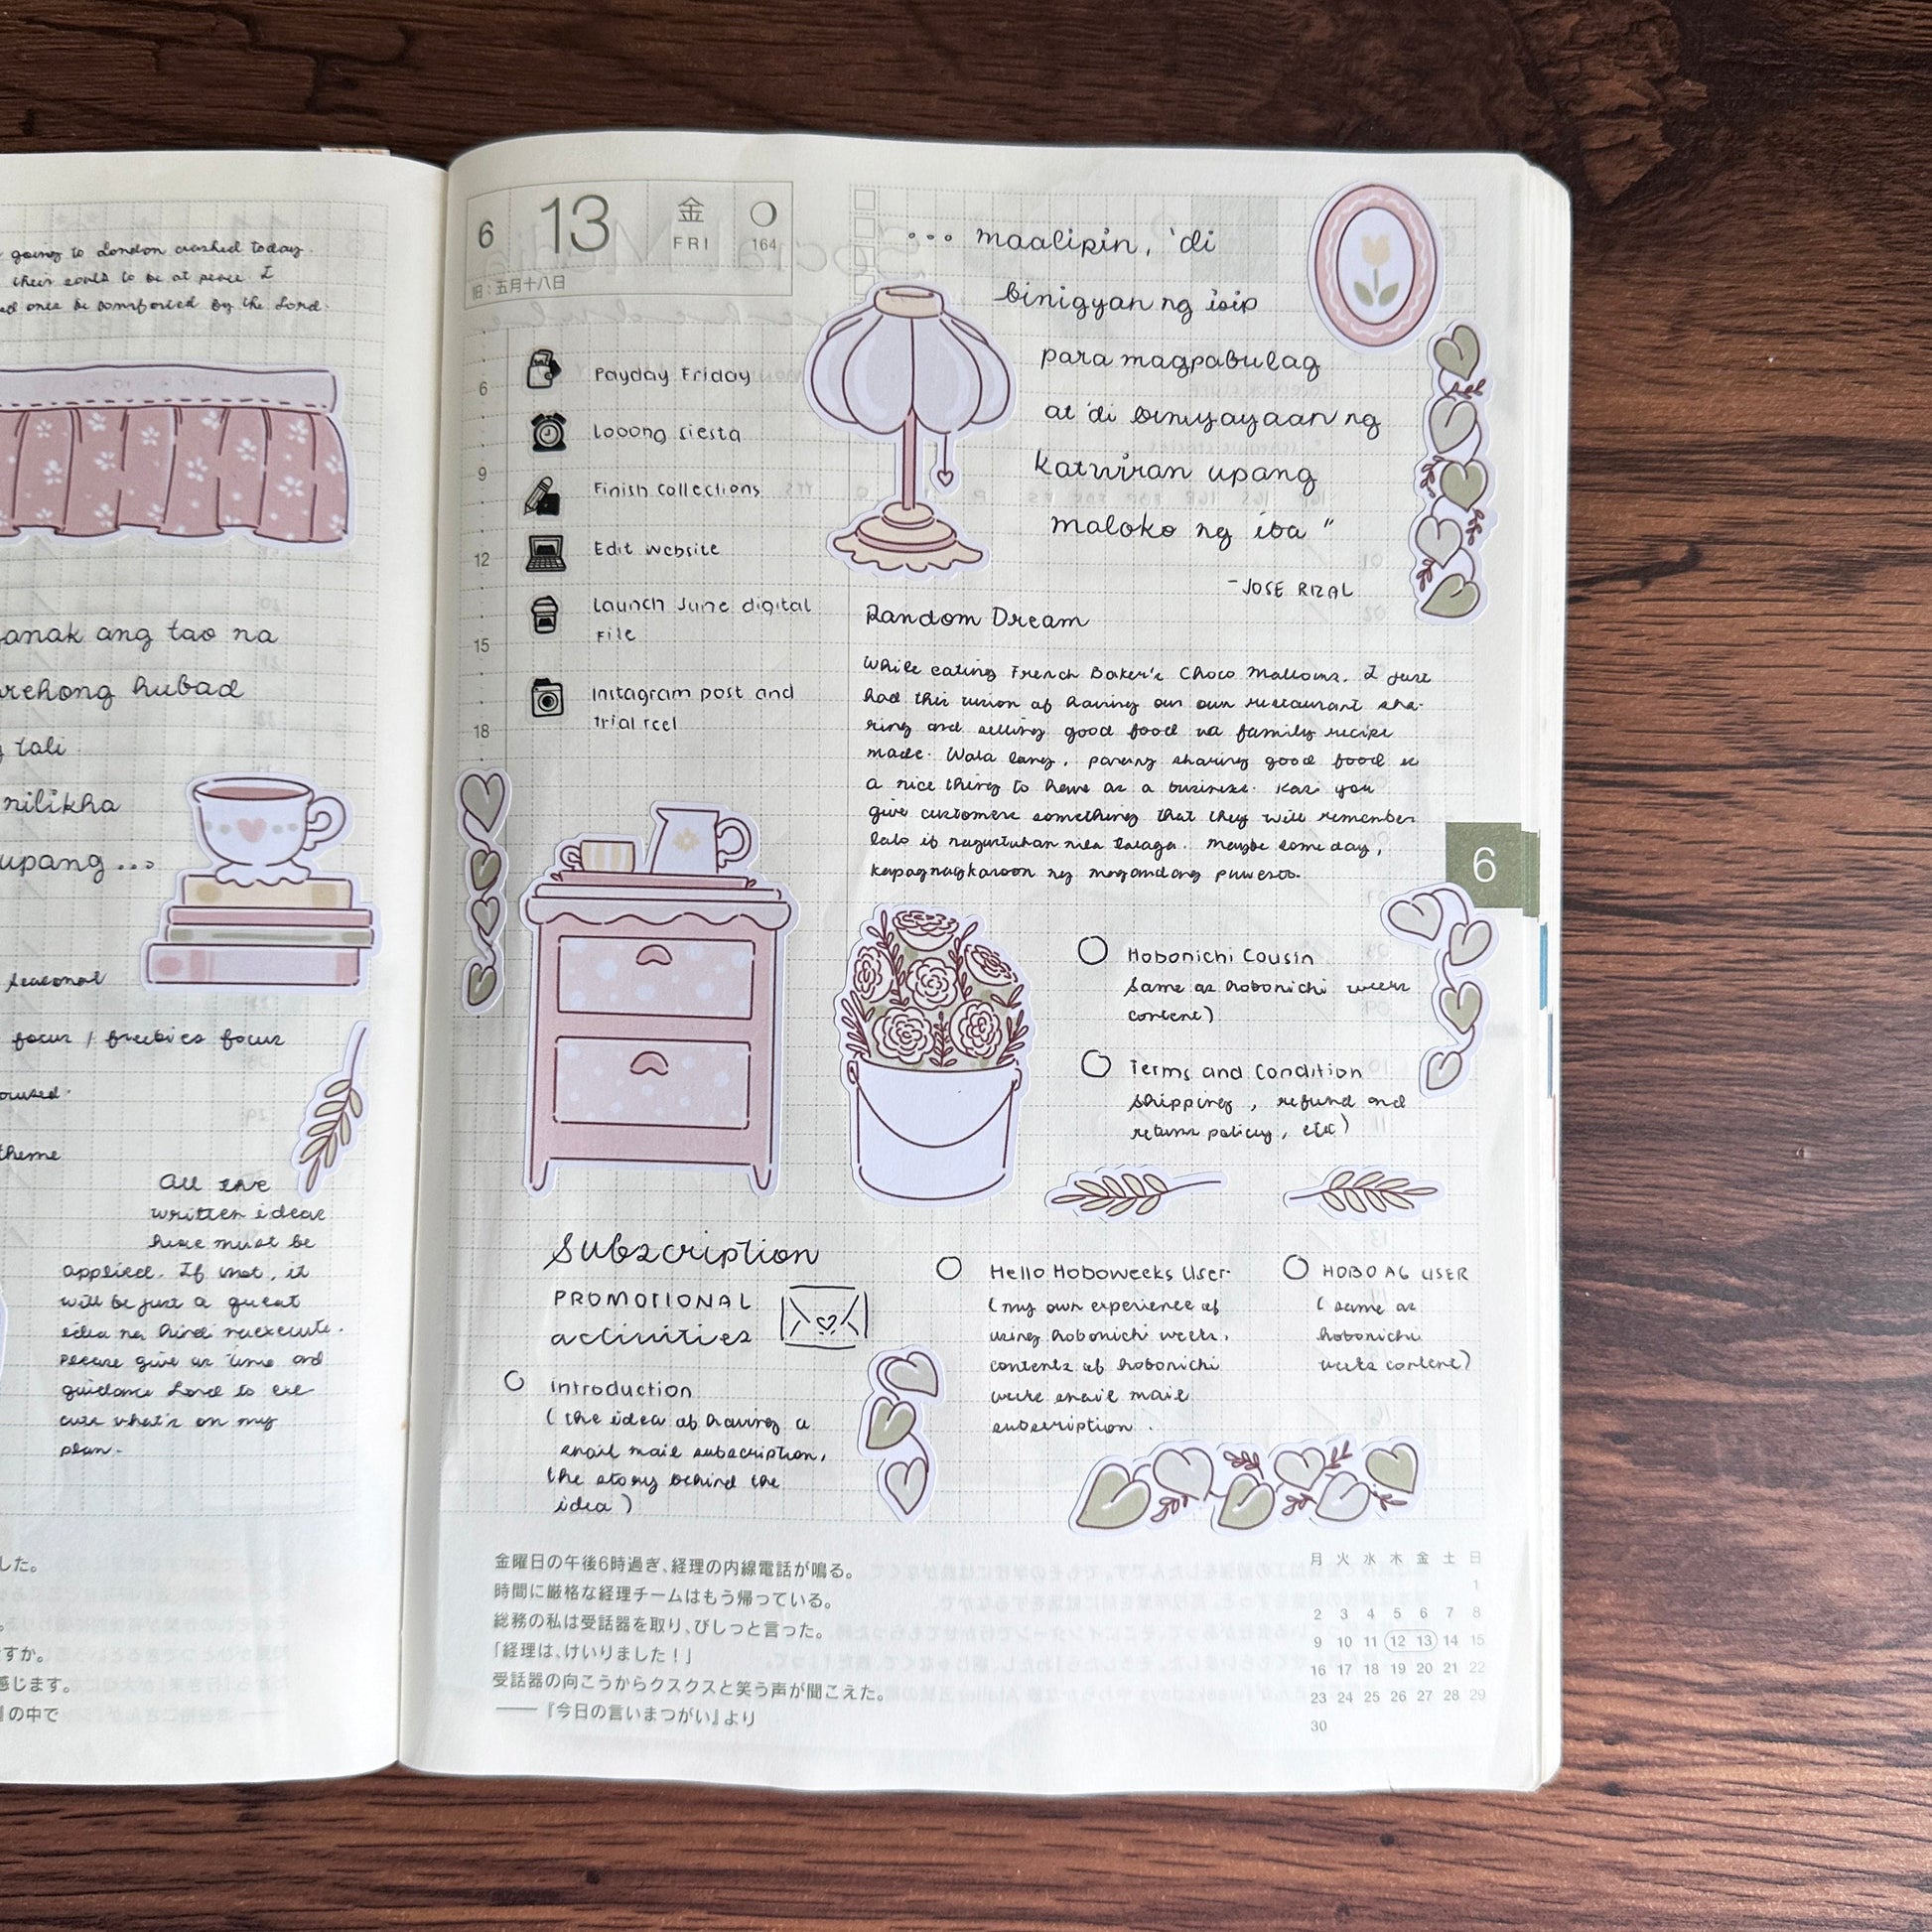 going to London crashed today.
their souls to be at peace. I
once be comforted by the Lord.
anak ang tao na
hubad
tali
nilikha
upang ...
seasonal
focus / freebies focus
theme
All the
written ideas
here must be
applied. If not, it
will be just a great
idea na hindi naexecute.
Please give us time and
guidance Lord to exe
cute what's on my
plan.
した。
すか。
感じます。
の中で
6
13
金
FRI
164
旧:五月十八日
... maalipin, 'di
binigyan ng isip
para magpabulag
at 'di biniyayaan ng
katwiran upang
maloko ng iba "
- JOSE RIZAL
6
9
12
15
18
Payday Friday
Looong siesta
Finish collections
Edit website
Launch June digital
File
Instagram post and
trial reel
Random Dream
While eating French Baker's Choco Mallows. I just
had this vision of having our own restaurant sha-
ring and selling good food na family recipe
made. Wala lang, parang sharing good food is
a nice thing to have as a business. Kasi you
give customers something that they will remember
lalo if nagustuhan nila talaga. Maybe some day,
kapag nagkaroon ng magandang puwesto.
6
Hobonichi Cousin
Same as hobonichi weeks
content)
Terms and Condition
shipping, refund and
return policy, etc)
Subscription
PROMOTIONAL
activities
introduction
(the idea of having a
snail mail subscription,
the story behind the
idea)
Hello Hoboweeks User
(my own experience of
using hobonichi weeks,
contents of hobonichi
weeks snail mail
subscription.
HOBO A6 USER
(same as
hobonichi
weeks content)
金曜日の午後6時過ぎ、経理の内線電話が鳴る。
時間に厳格な経理チームはもう帰っている。
総務の私は受話器を取り、びしっと言った。
「経理は、けいりました!」
受話器の向こうからクスクスと笑う声が聞こえた。
——『今日の言いまつがい』より
月 火 水 木 金 土 日
1
2 3 4 5 6 7 8
9 10 11 12 13 14 15
16 17 18 19 20 21 22
23 24 25 26 27 28 29
30